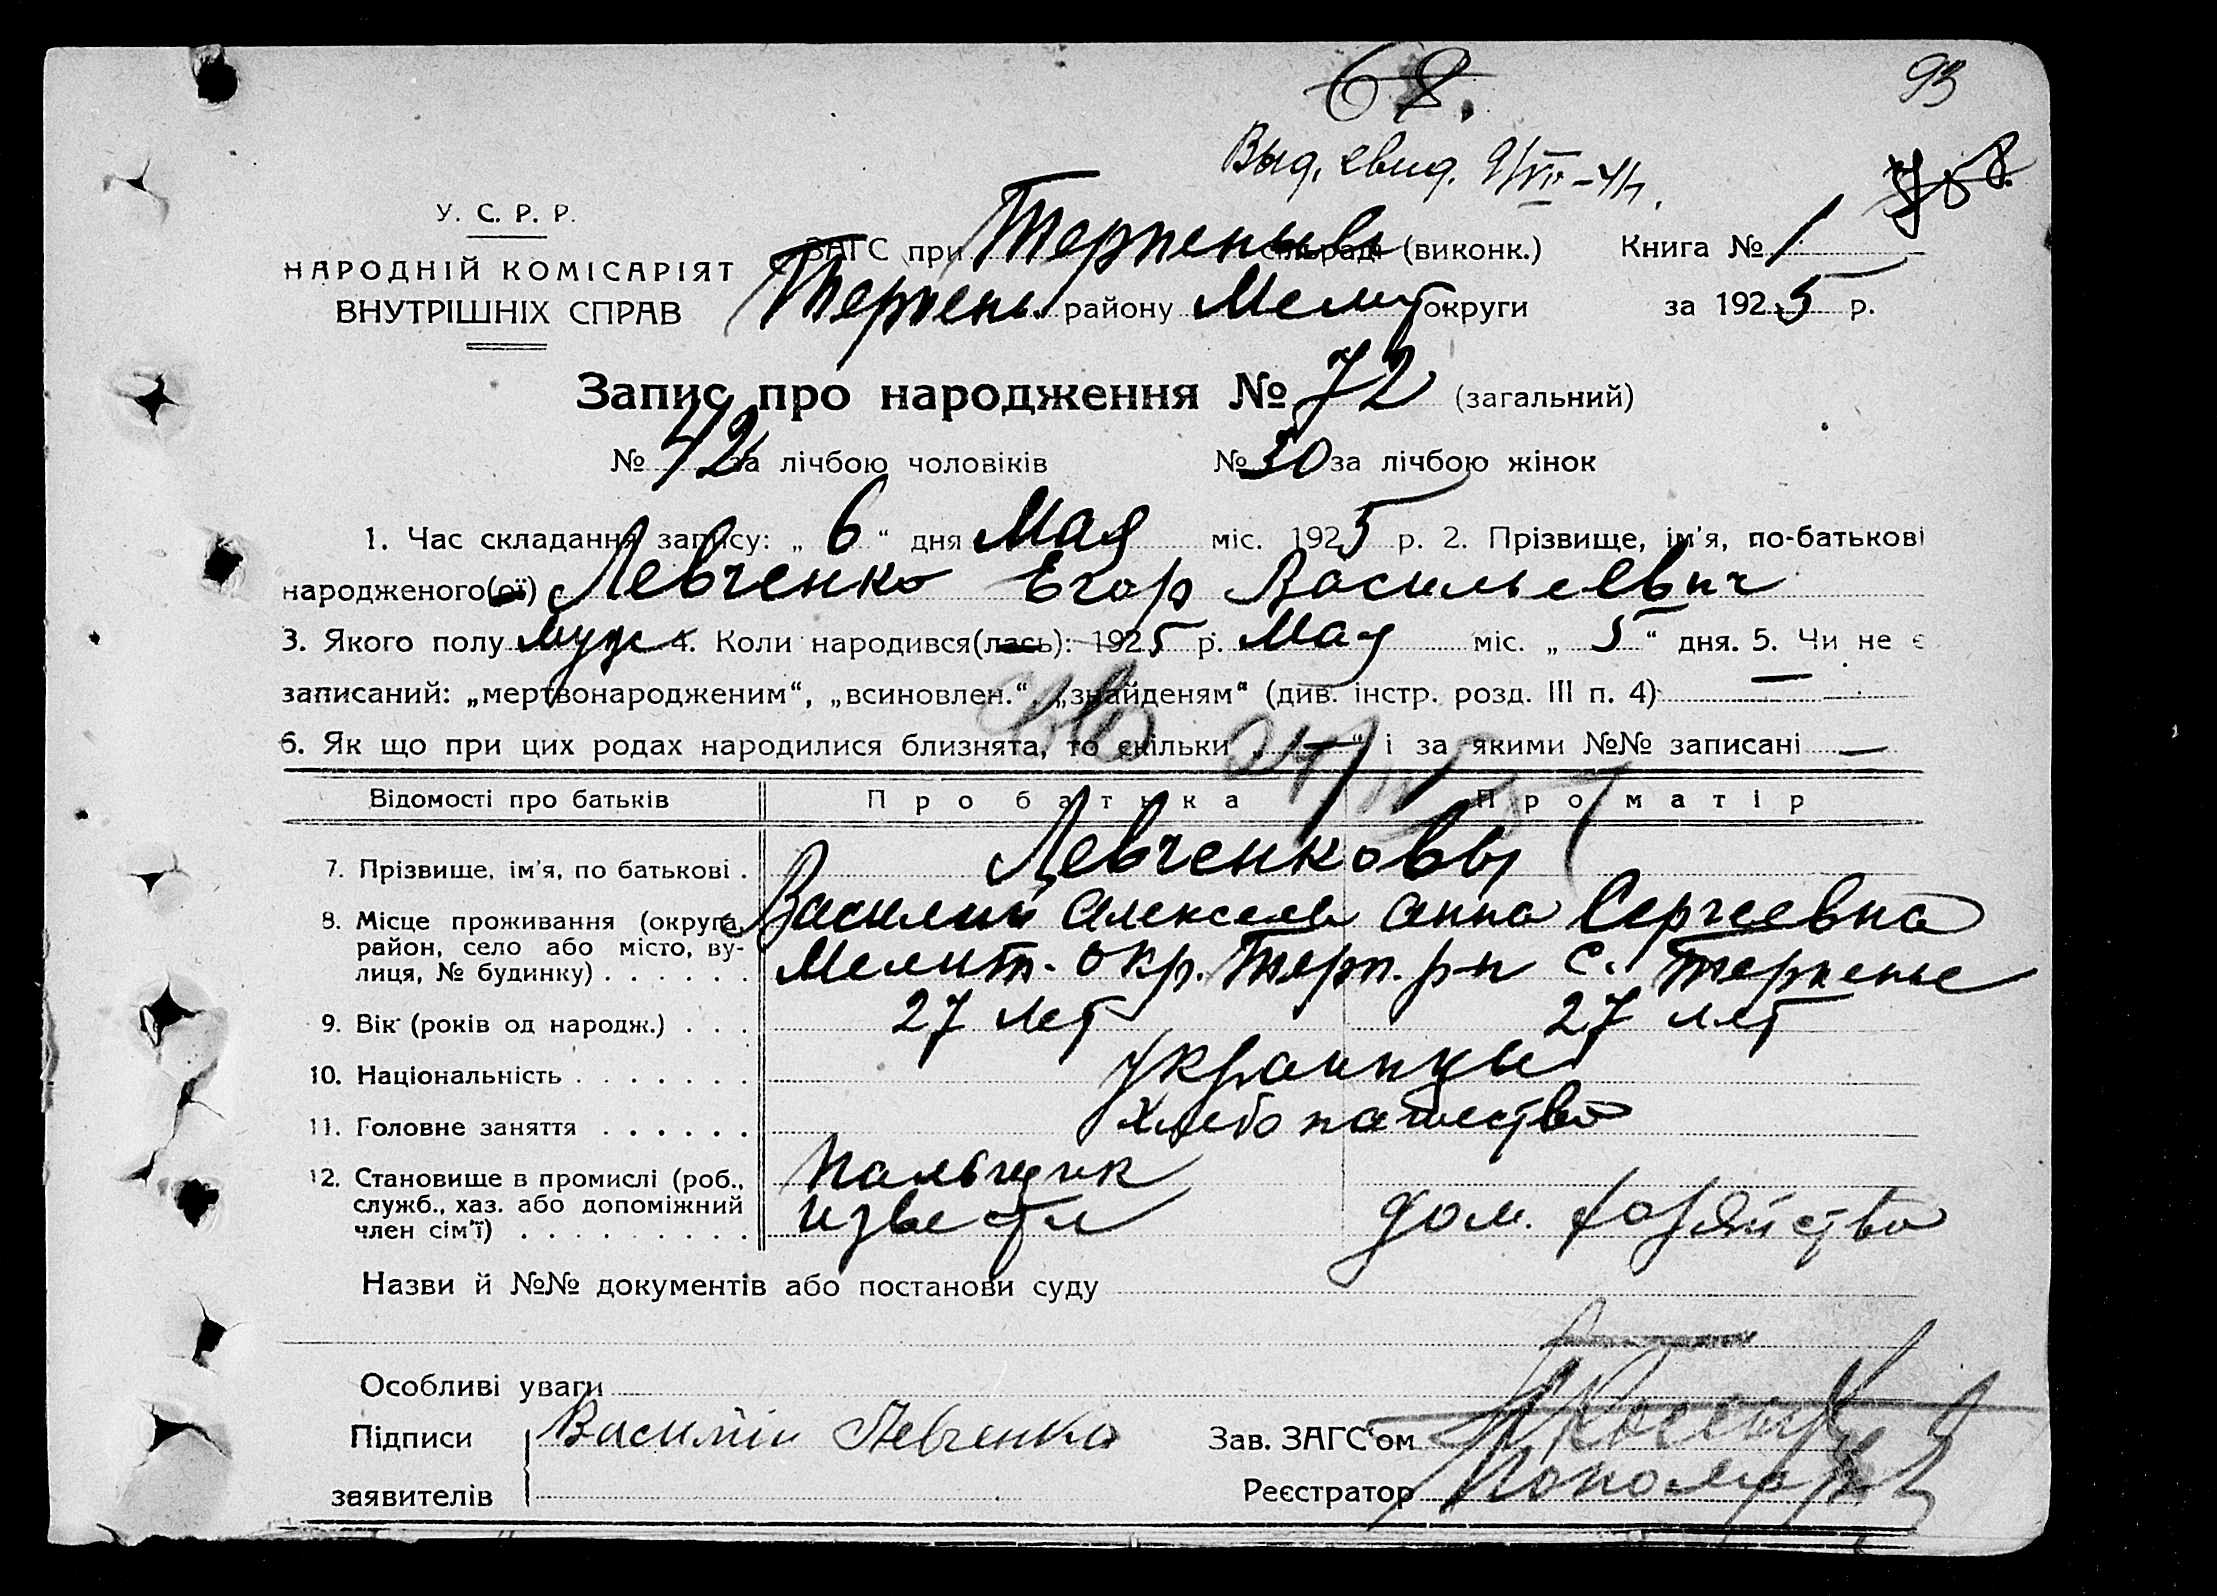 68.
93
Выд. свид. 9/VII-41г.
У. С. Р. Р.
НАРОДНІЙ КОМІСАРІЯТ
ВНУТРІШНІХ СПРАВ
ЗАГС при Терпеньев сільраді (виконк.) Книга № 1
Терпень району Мелит округи за 1925 р.
Запис про народження № 72 (загальний)
№ 42 за лічбою чоловіків № 30 за лічбою жінок
1. Час складання запису: „ 6 “ дня Мая міс. 1925 р. 2. Прізвище, ім'я, по-батькові
народженого(ої) Левченко Егор Васильевич
3. Якого полу муж 4. Коли народився(лась): 1925 р. Мая міс. „ 5 “ дня. 5. Чи не є
записаний: „мертвонародженим“, „всиновлен.“ „знайденям“ (див. інстр. розд. III п. 4) —
6. Як що при цих родах народилися близнята, то скільки „ — “ і за якими №№ записані —
Відомості про батьків Про батька Про матір
7. Прізвище, ім'я, по батькові . Левченковы
Василий Алексеев Анна Сергеевна
8. Місце проживання (округа,
район, село або місто, ву-
лиця, № будинку) . . . . . . Мелит. окр. Терп. р-н с. Терпенье
9. Вік (років од народж.) . . . 27 лет 27 лет
10. Національність . . . . . . . Украинцы
11. Головне заняття . . . . . . Хлебопашество
12. Становище в промислі (роб.,
служб., хаз. або допоміжний
член сім'ї) . . . . . . . . . дом. хозяйство
Назви й №№ документів або постанови суду
Особливі уваги
Підписи Василий Левченко Зав. ЗАГС'ом
заявителів Реєстратор